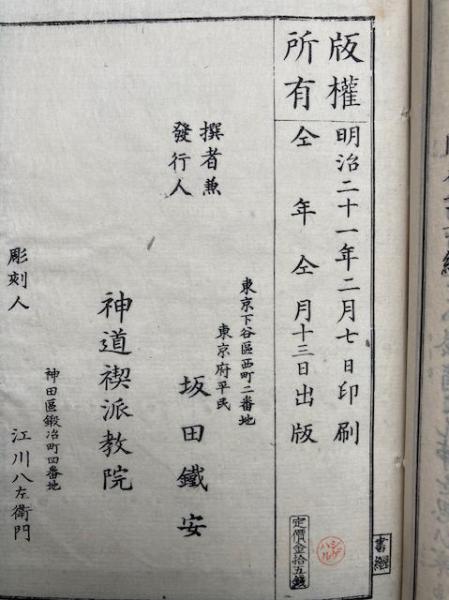 版權
所有
明治二十一年二月七日印刷
仝年仝月十三日出版
定價金拾五錢
撰者兼
發行人
東京下谷區西町二番地
東京府平民
坂田鐵安
神道禊派教院
彫刻人
神田區鍛冶町四番地
江川八左衞門